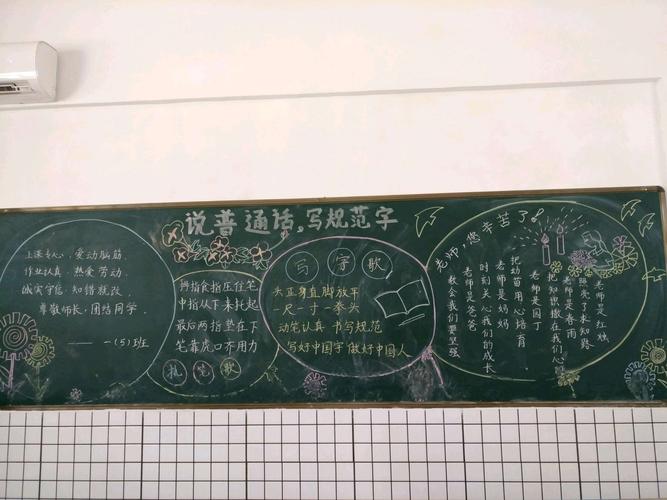 说普通话，写规范字
上课专心，爱动脑筋，
作业认真，热爱劳动，
诚实守信，知错就改，
尊敬师长，团结同学。
——一(5)班
拇指食指压住笔
中指从下来托起
最后两指垫在下
笔靠虎口不用力
执笔歌
写字歌
头正身直脚放平
尺一寸一拳头
动笔认真 书写规范
写好中国字 做好中国人
老师，您辛苦了！
老师是红烛
照亮了求知路
老师是春雨
把知识撒在我们心
老师是园丁
把幼苗用心培育
老师是妈妈
时刻关心我们的成长
老师是爸爸
教会我们要坚强